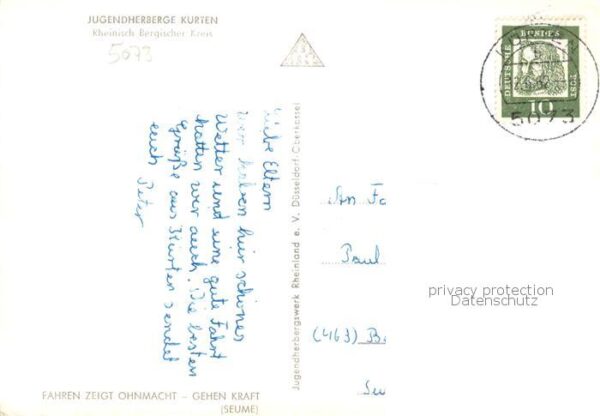 JUGENDHERBERGE KÜRTEN
Rheinisch Bergischer Kreis
5073
DEUTSCHE BUNDESPOST
10
5073
Liebe Eltern
wir haben hier schönes
Wetter und eine gute Fahrt
hatten wir auch. Die besten
Grüße aus Kürten sendet
euch Peter
Jugendherbergswerk Rheinland e. V. Düsseldorf-Oberkassel
An Fa
Paul
privacy protection
Datenschutz
(463)
FAHREN ZEIGT OHNMACHT – GEHEN KRAFT
(SEUME)